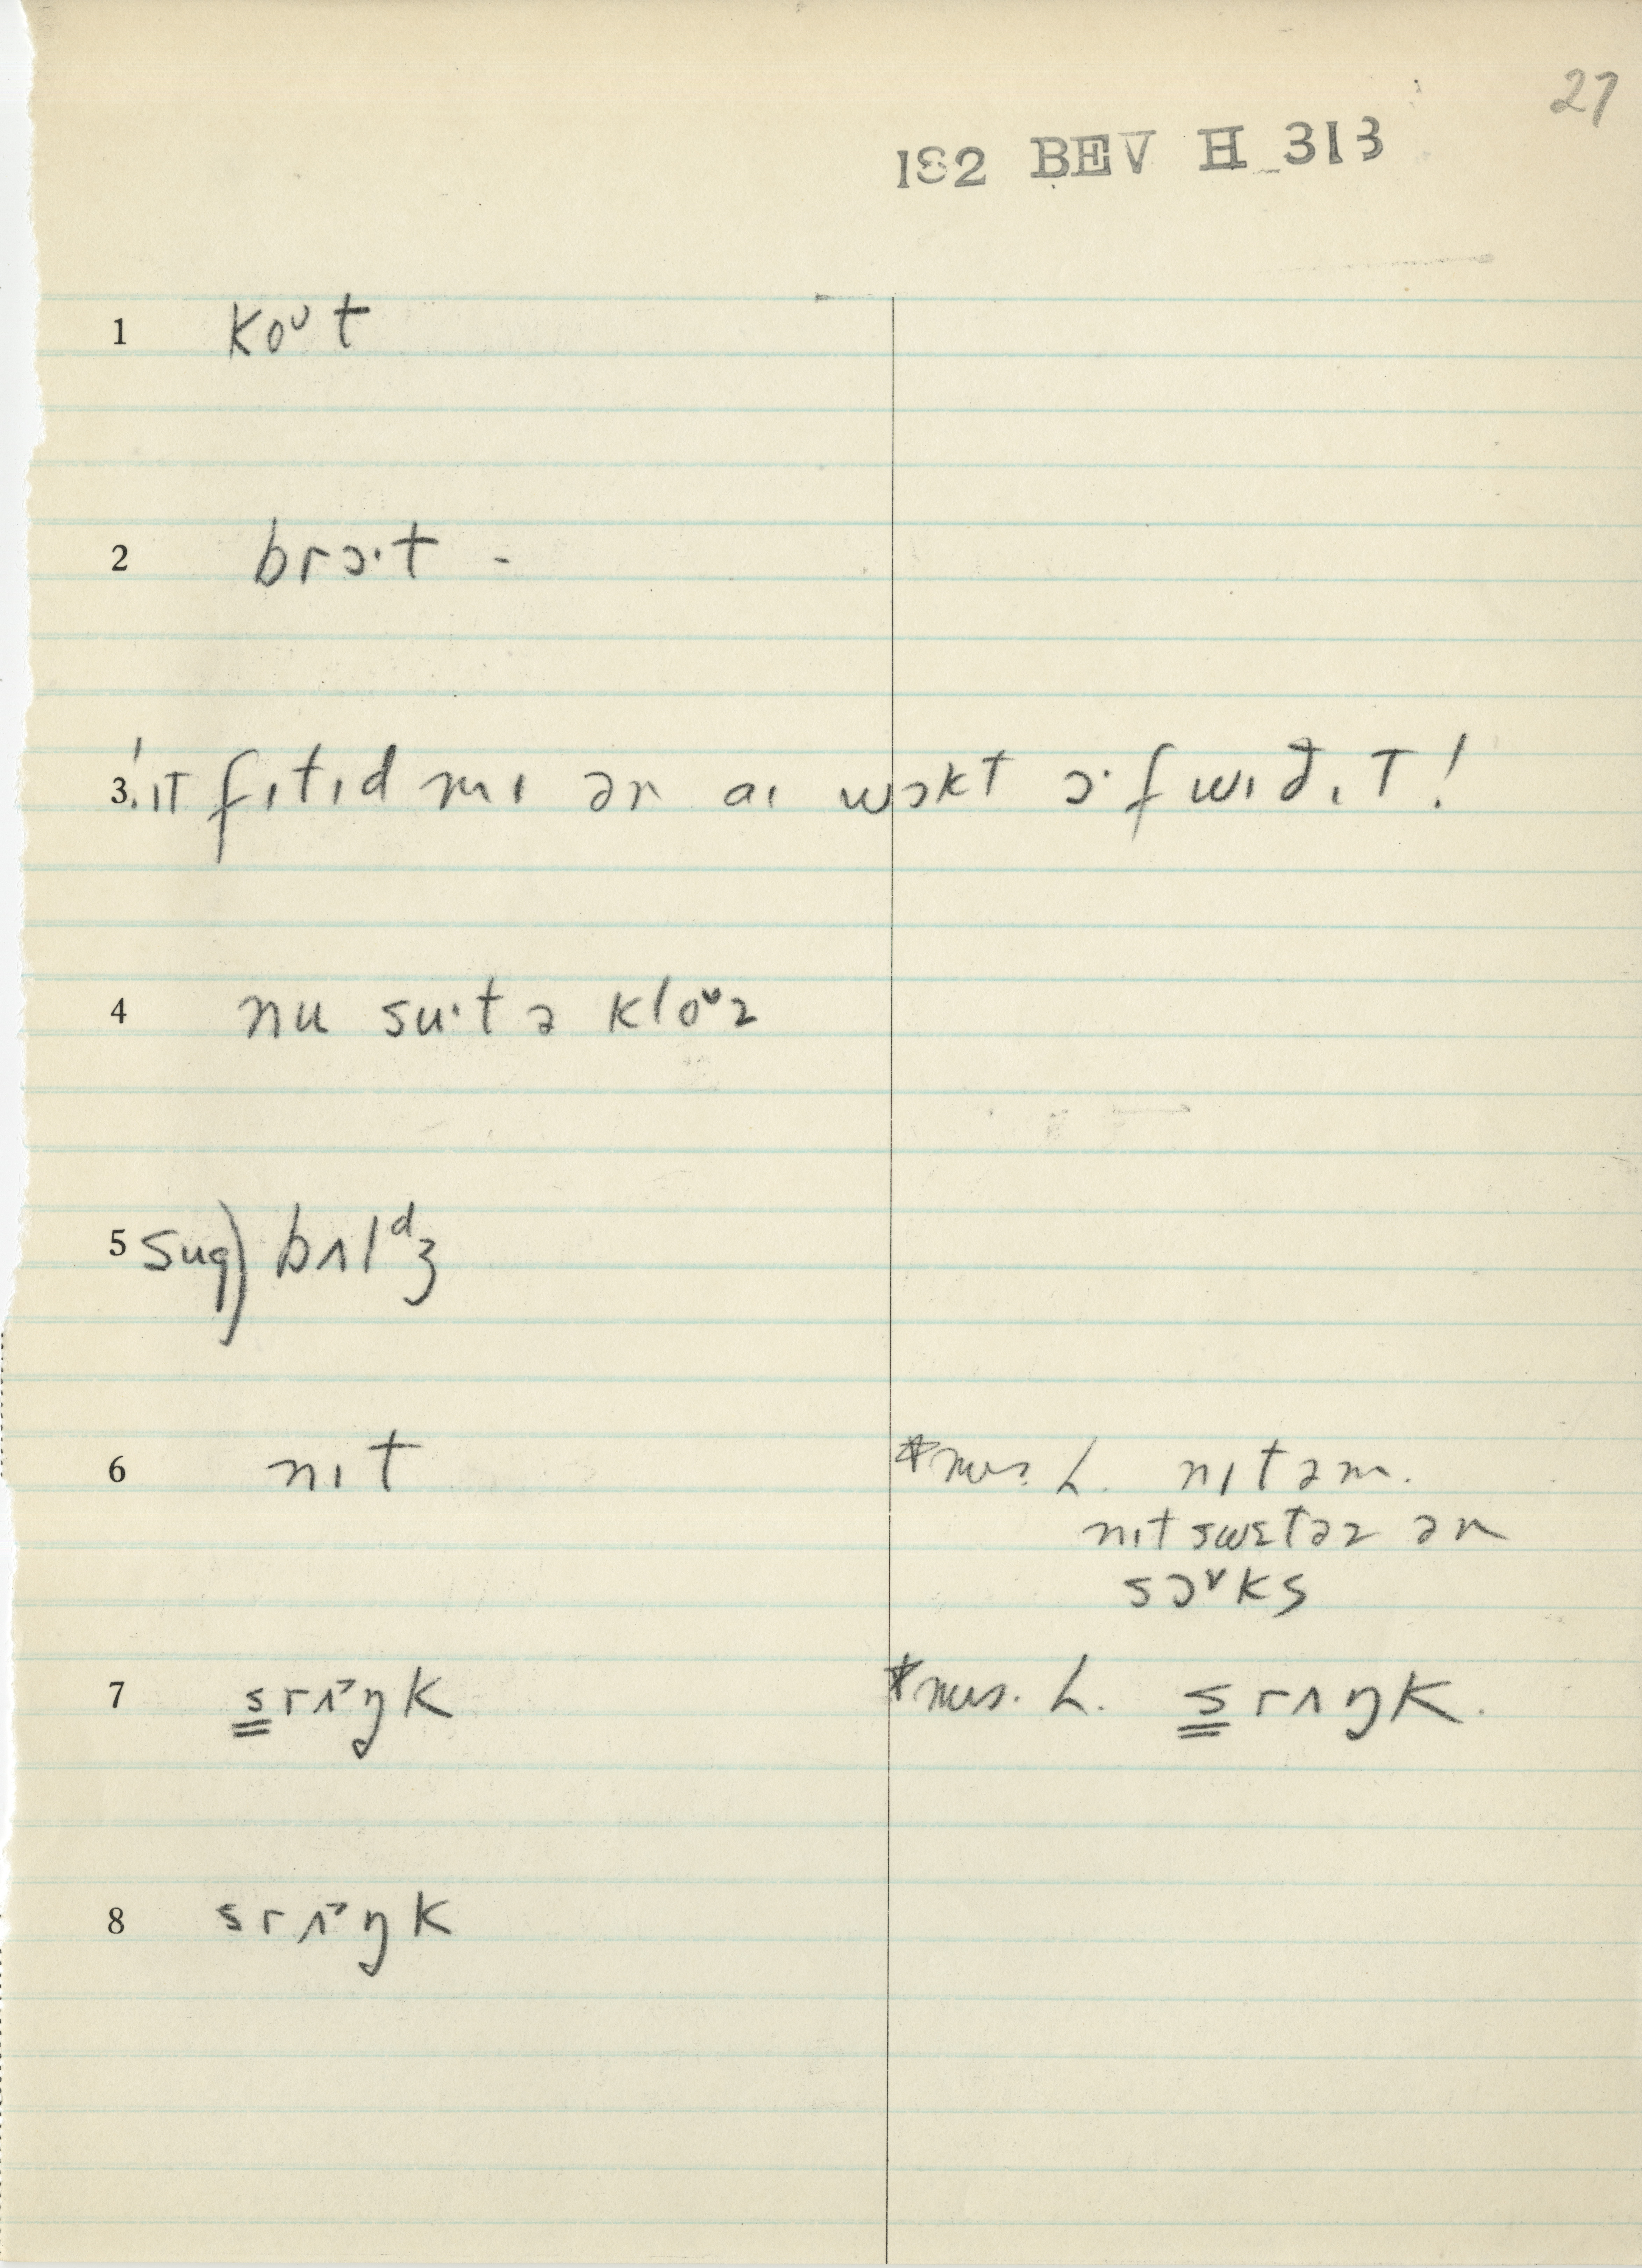 27
182 BEV H 313
1 koᴜt
2 brɔ·t -
3 ! ɪt fɪtɪd mɪ ən aɪ wɔkt ɔ·f wɪð ɪt!
4 nu su·t ə kloᴜz
5 sug) bʌlᵈʒ
6 nɪt *mrs. L. nɪt əm.
nɪt swɛtəz ən
sɔᵛks
7 s̳rʌ˃ŋk *mrs. L. s̳rʌŋk.
8 srʌ˃ŋk